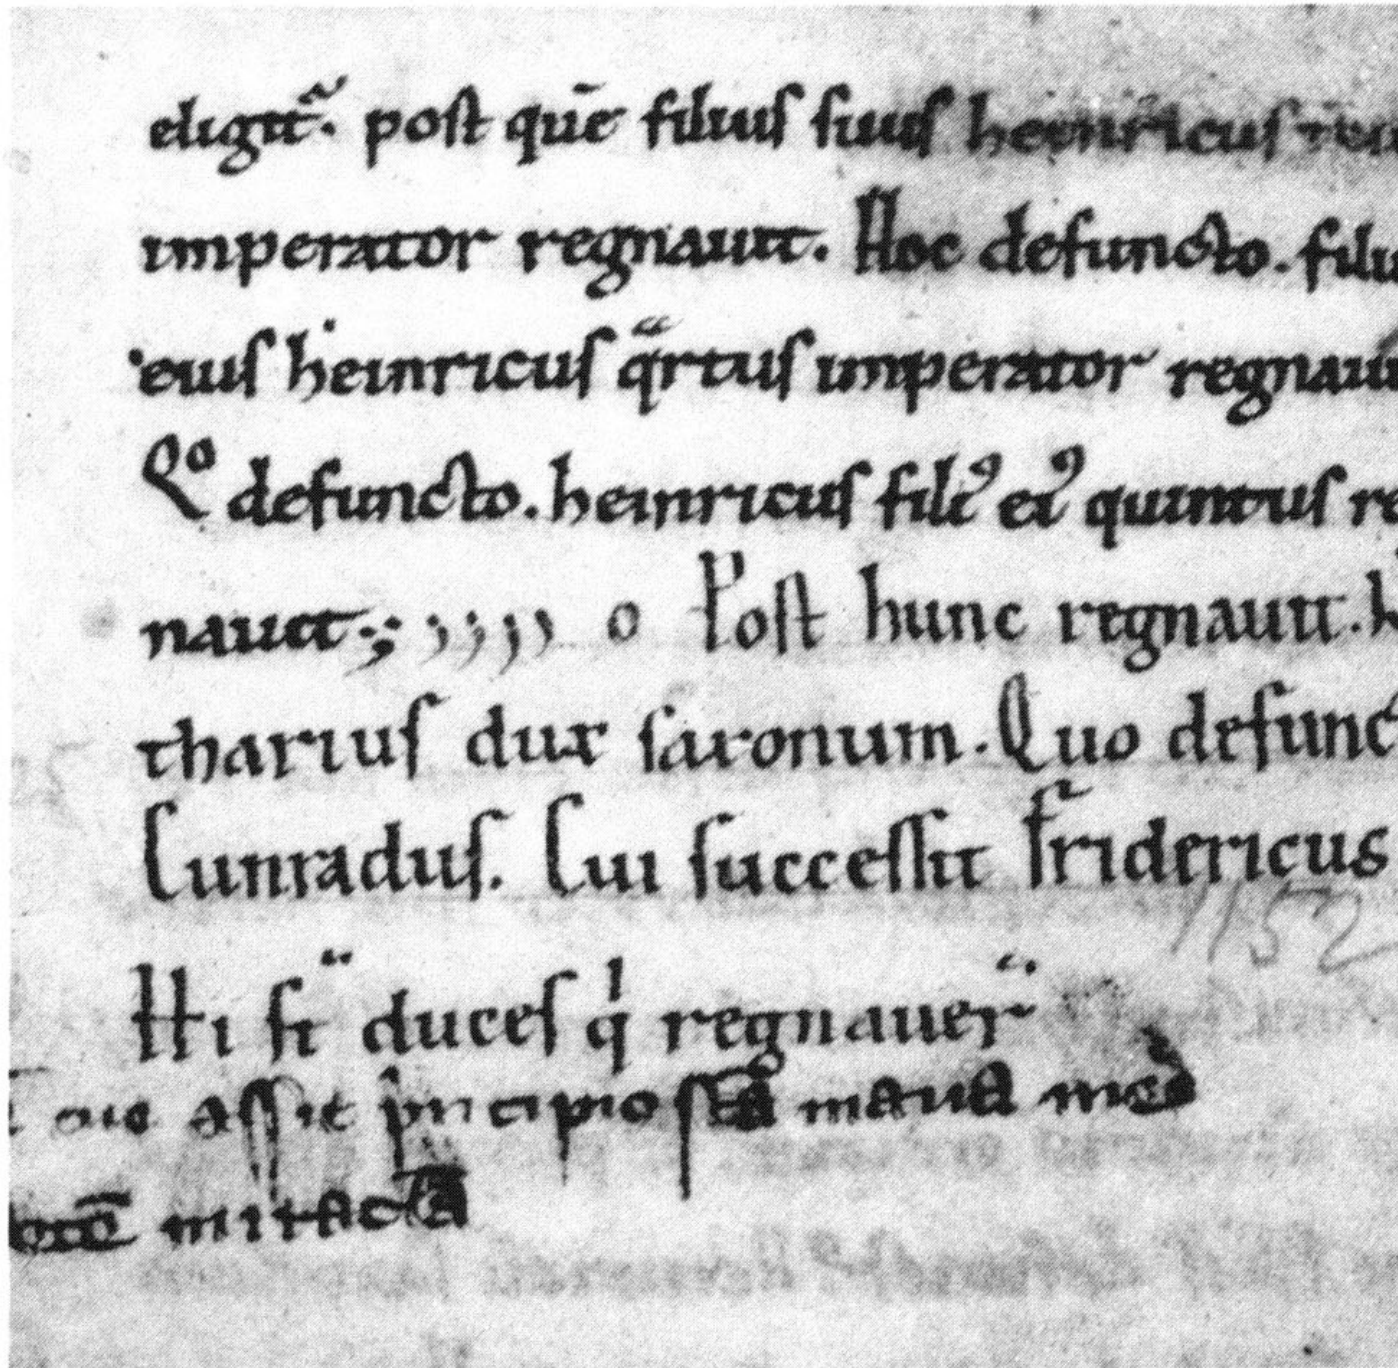 eligit᷑. post quē filiuſ ſuuſ heinricuſ
imperator regnauit. Hoc defuncto. filiu
eiuſ heinricuſ qͣrtuſ imperator regnaui
Qͦ defuncto. heinricuſ filiꝰ eiꝰ quintuſ re
nauit; ; ; ; ; o Poſt hunc regnauit.
thariuſ dux ſaxonum. Quo defunc
Cunraduſ. Cui ſucceſſit Fridericus
1152
Hi ſt̄ duceſ qⁱ regnauer̄
aſſit pⁱncipio ſc̄a maria meo